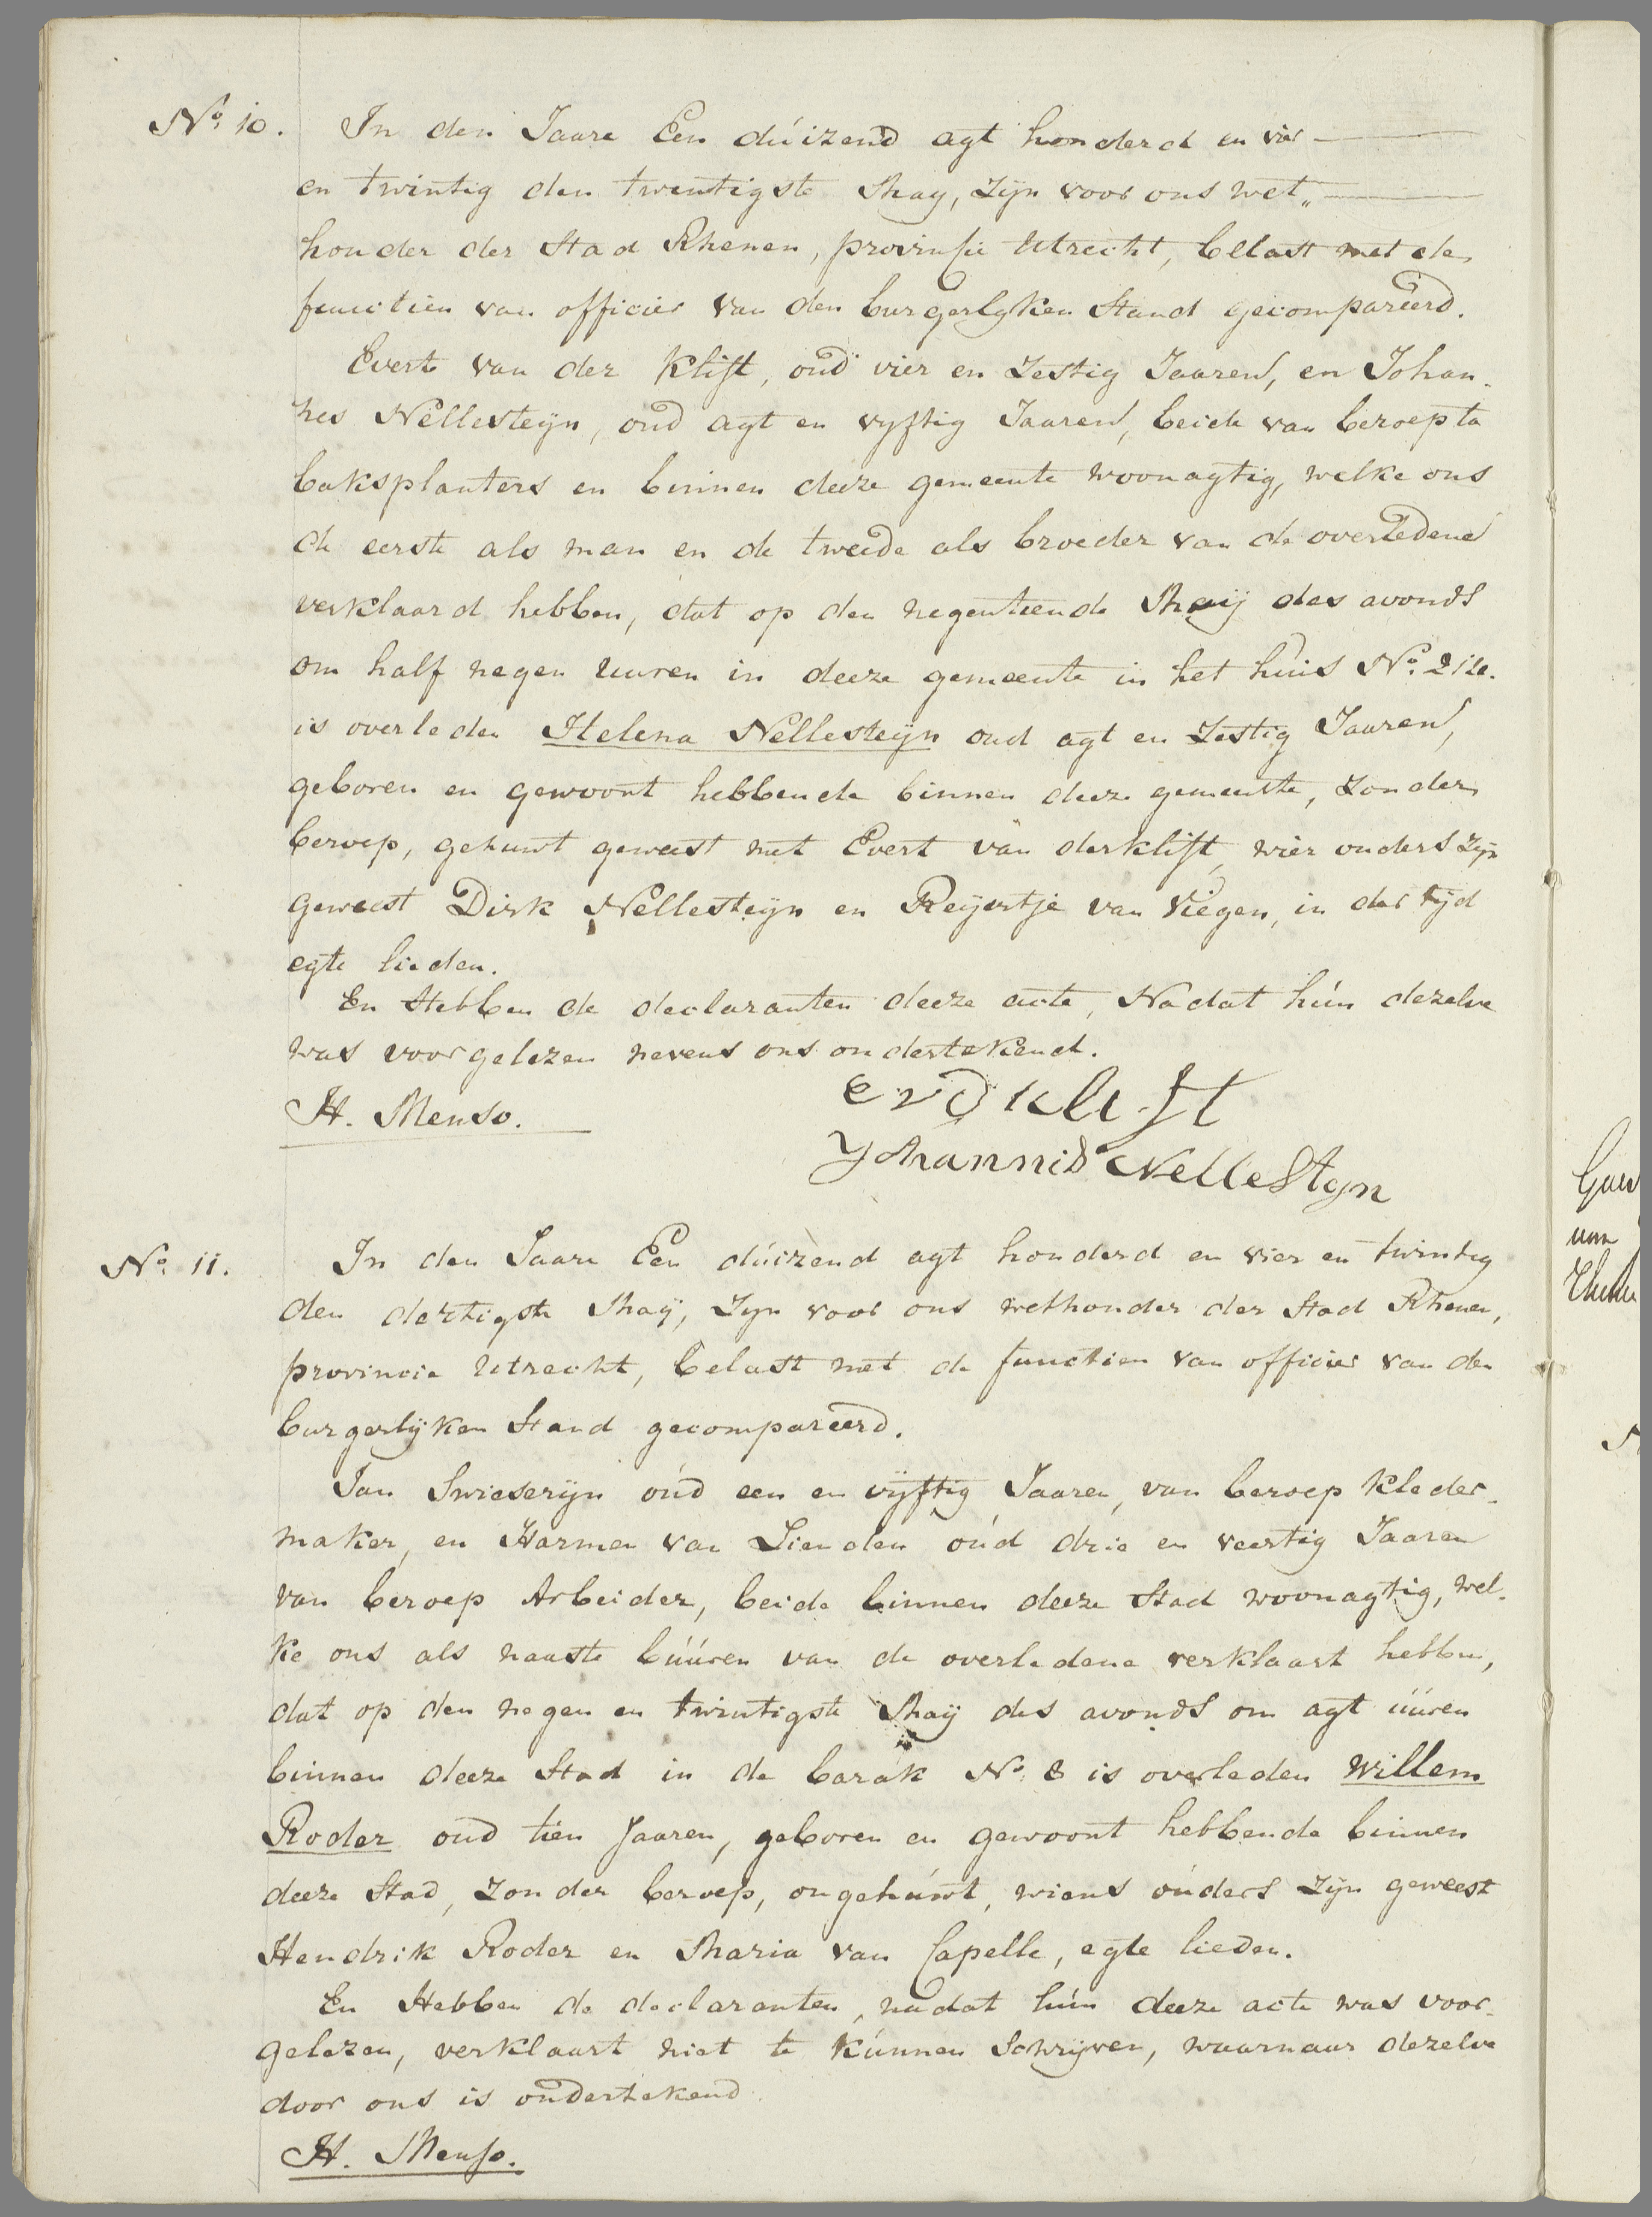 No. 10. In den Jaare Een duizend agt honderd en vier
en twintig den twentigste May, zijn voor ons wet„
houder der Stad Rhenen, provinsie Utrecht, belast met de
functien van officier van den burgerlyken Stand gecompareerd.
Evert van der Klift, oud vier en Zestig Jaaren, en Johan-
nes Nellesteijn, oud agt en vyftig Jaaren, beide van beroep ta
baksplanters en binnen deeze gemeente woonagtig, welke ons
de eerste als man en de tweede als broeder van de overledene
verklaard hebben, dat op den negentiende Maij des avonds
om half negen uuren in deeze gemeente in het huis No.
is overleden Helena Nellesteijn oud agt en Zestig Jaaren,
geboren en gewoont hebbende binnen deeze gemeente, zonder
beroep, gehuwt geweest met Evert van derklift, wier ouders zijn
geweest Dirk Nellesteijn en Reijertje van Viegen, in der tijd
egte lieden.
En Hebben de declaranten deeze acte, Nadat hún dezelve
was voorgelezen nevens ons ondertekend.
H. Menso. evdklift
Johannis Nellestyn
No. 11. In den Jaare Een dúizend agt honderd en vier en twintig
den dertigste Maÿ, Zyn voor ons wethouder der Stad Rhenen,
provincie Utrecht, belast met de functien van officier van den
burgerlijken Stand gecompareerd.
Jan Swieserijn oúd een en vijftig Jaaren, van beroep kleder-
maker, en Harmen van Lienden oúd drie en veertig Jaaren
van beroep Arbeider, beide binnen deeze Stad woonagtig, wel-
ke ons als naaste búúren van de overledene verklaart hebben,
dat op den negen en twintigste Maij des avonds om agt úúren
binnen deeze Stad in de barak No. 8 is overleden Willem
Roder oud tien Jaaren, geboren en gewoont hebbende binnen
deeze Stad, zonder beroep, ongehúwt, wiens oúders zijn geweest
Hendrik Roder en Maria van Capelle, egte lieden.
En Hebben de declaranten, nadat hún deeze acte was voor-
gelezen, verklaart niet te kúnnen Schrijven, waarnaar dezelve
door ons is ondertekend
H. Menso.